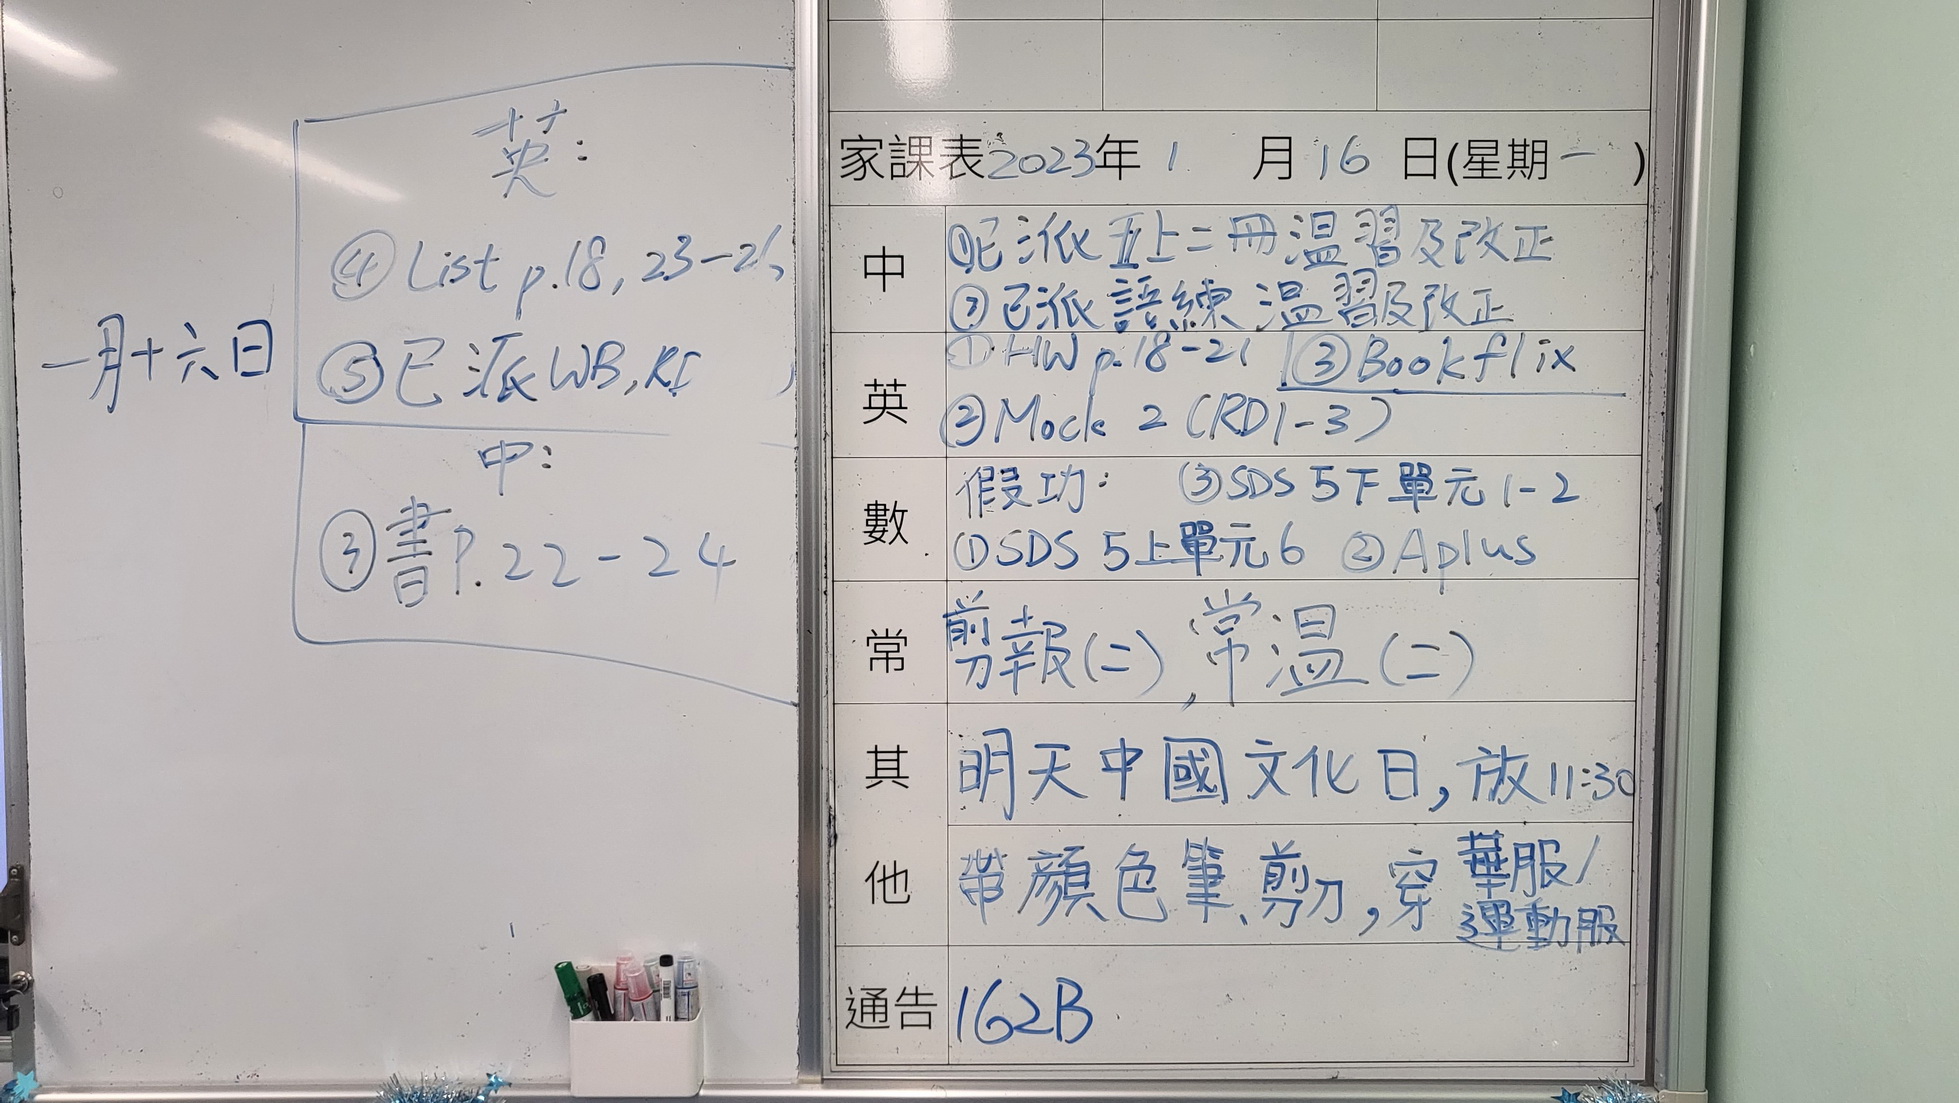 一月十六日
英:
④List p.18, 23-26,
⑤已派WB, RI
中:
③書P.22-24
家課表2023年 1 月 16 日(星期一 )
中
①已派五上二冊温習及改正
②已派語練温習及改正
英
①HW p.18-21 ③Bookflix
②Mock 2 (RD1-3)
數
假功: ③SDS 5下單元1-2
①SDS 5上單元6 ②Aplus
常
剪報(二), 常温(二)
其他
明天中國文化日, 放11:30
帶顏色筆、剪刀, 穿華服/
運動服
通告 162B